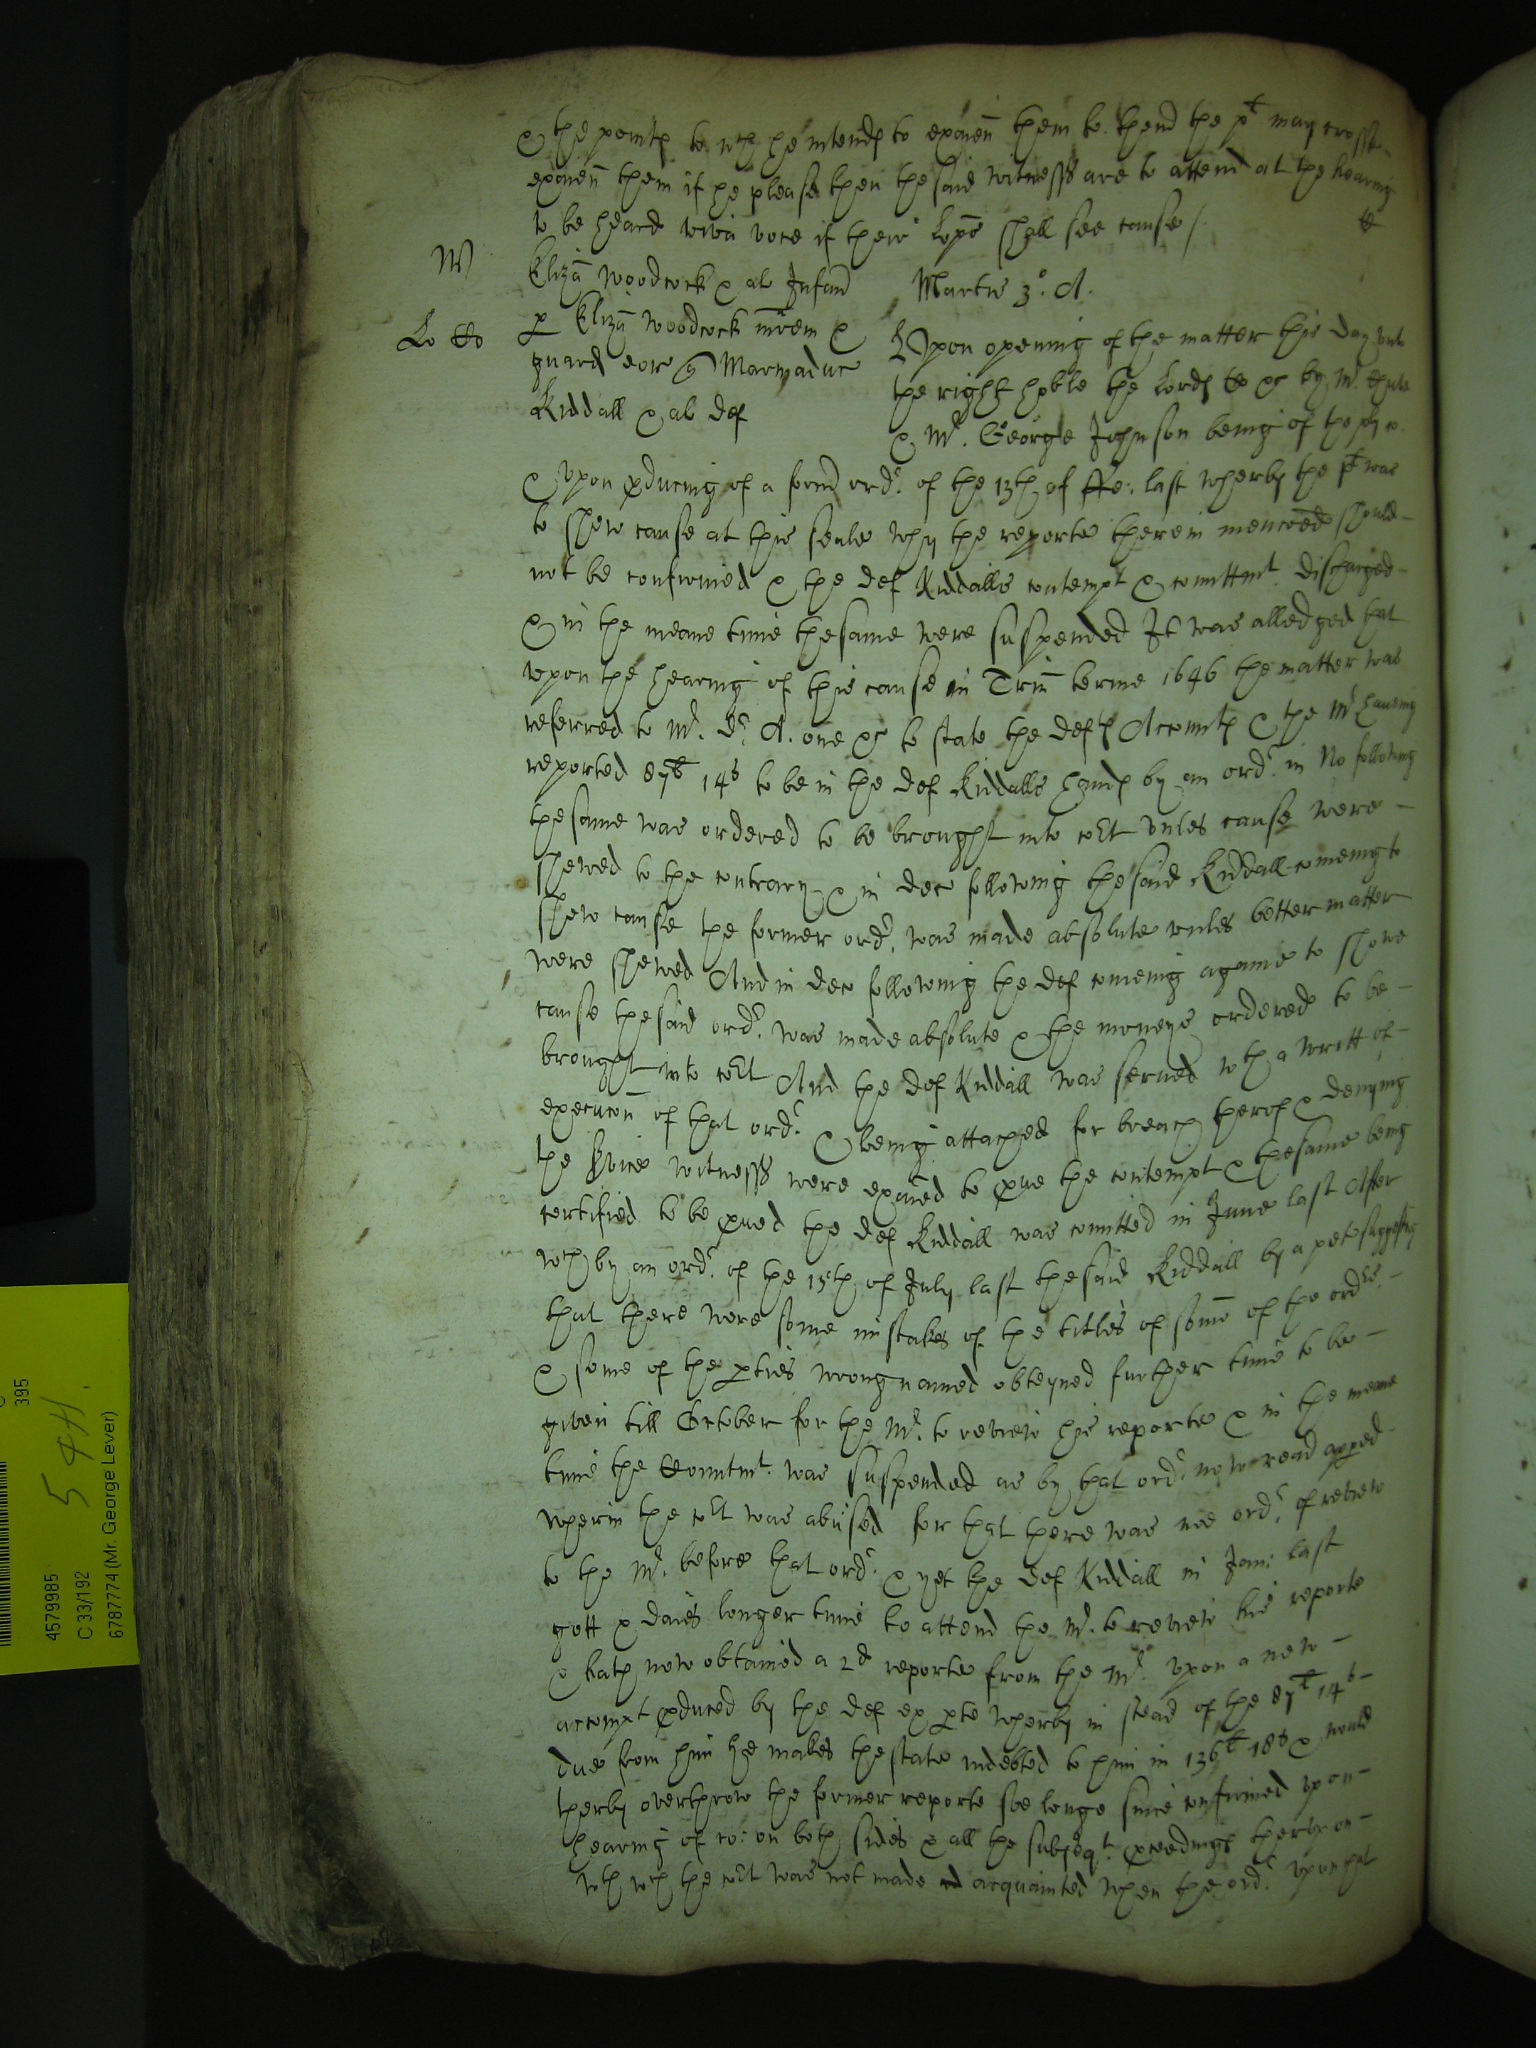 & the points to wch he intends to exaien them to thend the plt may crosse
exaien them if he please then the said witnesses are to attend at the hearing
to be heard viva voce if their Lopps shall see cause /.
W
Eliza Woodcock & al Infant
Martis 3°. A.
Lo Co
p Eliza Woodcock mrem &
guard eor q Marmaduc
Kiddall & al def
Upon opening of the matter this day unto
the right hoble the Lords Co &c by Mr.
& Mr. George Johnson being of the plts co.
& upon pducing of a formr ordr. of the 13th of ffe: last wherby the plt was
to shew cause at this seale why the reporte therein menconed should
not be confirmed & the def Kiddalls contempt & comittmt. discharged
& in the meane time the same were suspended It was alledged that
upon the hearing of this cause in Trin terme 1646 the matter was
referred to Mr. Dr. A. one &c to state the defts Accounts & the Mr. having
reported 87li 14s to be in the def Kiddalls hands by an ordr. in No following
the same was ordered to be brought into cort unles cause were
shewed to the contrary & in dec following the said Kiddall comeing to
shew cause the former ordr. was made absolute unles better matter
were shewed And in dec following the def comeing againe to shewe
cause the said ordr. was made absolute & the moneys ordered to be
brought into cort And the def Kiddall was served wth a writt of
execucon of that ordr. & being attached for breach therof & denying
the service witnesses were exaied to pve the contempt & the same being
certified to be pved the def Kiddall was comitted in June last After
wch by an ordr. of the 15th of July last the said Kiddall by a pet suggesting
that there were some mistakes of the titles of some of the ordrs.
& some of the pties wrong named obteyned further time to be
given till October for the Mr. to review his reporte & in the meane
time the Comittmt. was suspended as by that ordr. now read appd
wherin the cort was abused for that there was noe ordr. of review
to the Mr. before that ordr. & yet the def Kiddall in Jan: last
gott x daies longer time to attend the Mr. to review his reporte
& hath now obtained a 2d reporte from the Mr. upon a new
accompt pduced by the def ex pte wherby in stead of the 87li 14s
due from him he makes the state indebted to him in 136li 18s & would
therby overthrow the former reporte soe longe since confirmed upon
hearing of co: on both sides & all the subseqt. pceedings therupon
wth wch the cort was not made acquainted when the ordr. upon that
395
5 4H.
4579985
C 33/192
6787774 (Mr. George Lever)